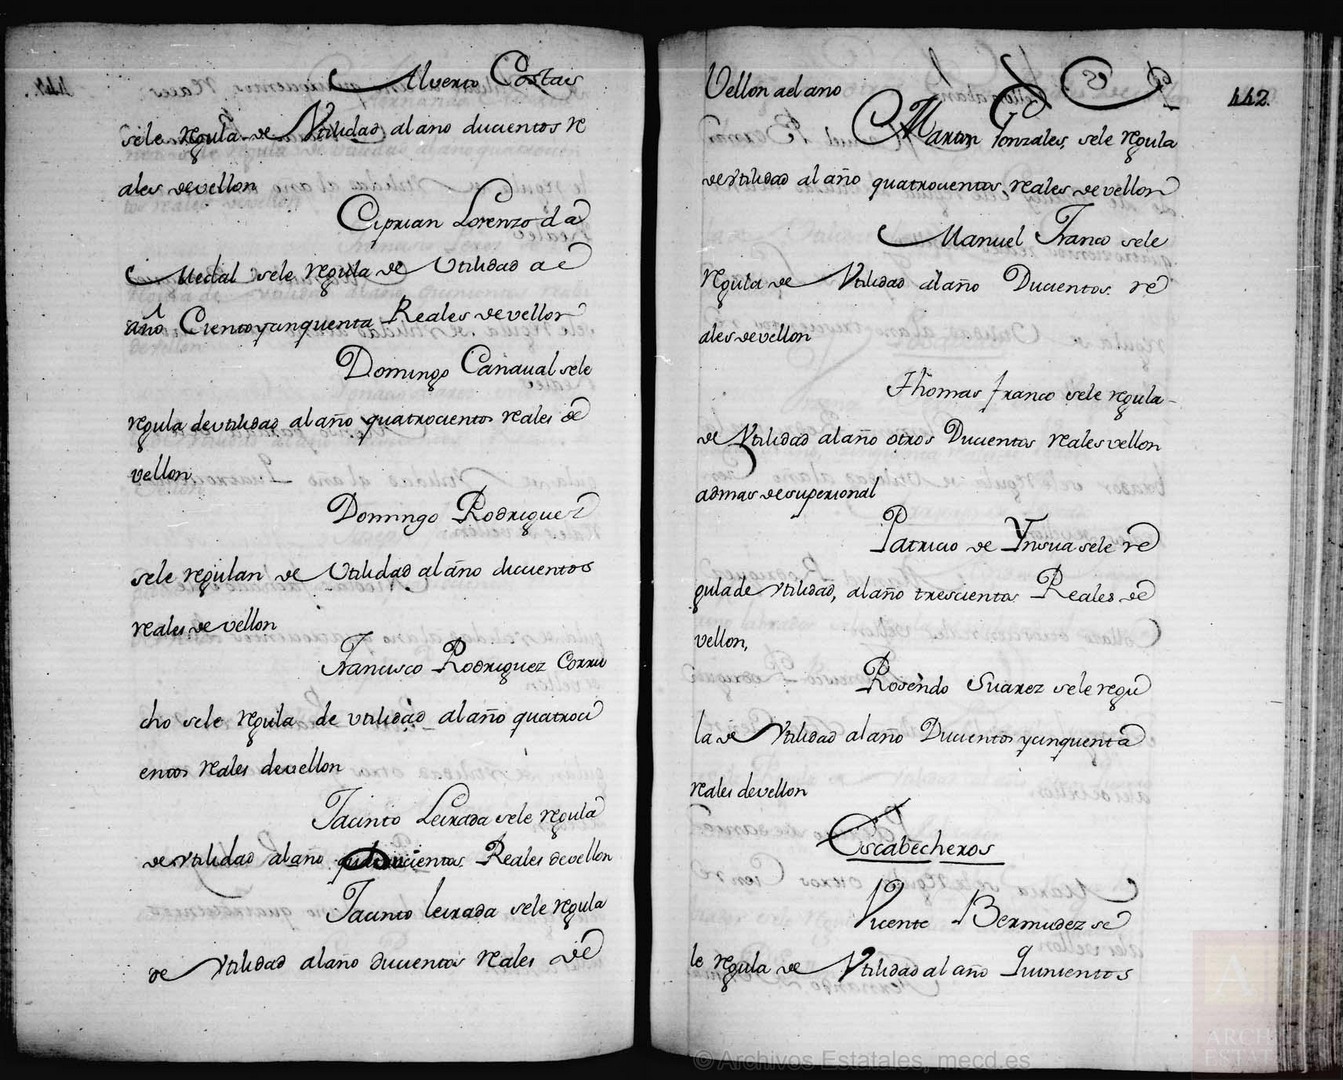 Alverto Costas
sele regula de Vtilidad al año ducientos re
ales de vellon
Ciprian Lorenzo da
Medal sele regula de Vtilidad a e
año Ciento y cinquenta Reales de vellon
Domingo Canaval sele
regula de utilidad al año quatrocientos reales de
vellon
Domingo Rodriguez
sele regulan de Vtilidad al año ducientos
reales de vellon
Francisco Rodriguez Corru
cho sele regula de vtilidad al año quatroci
entos reales de vellon
Jacinto Leirada sele regula
de vtilidad al año Reales de vellon
Jacinto leirada sele regula
de Vtilidad al año ducientos reales de
442
Vellon al año
Martin Gonzales sele regula
de vtilidad al año quatrocientos reales de vellon
Manuel Franco sele
regula de Vtilidad al año Ducientos re
ales de vellon
Thomas franco sele regula
de Vtilidad al año otros Ducientos reales vellon
admas de supersonal
Patricio de Ynsua sele re
gula de vtilidad, al año trescientos Reales de
vellon,
Rosendo Suarez sele regu
la de Vtilidad al año Ducientos y cinquenta
reales de vellon
Escabecheros
Vicente Bermudez se
le regula de Vtilidad al año Quinientos
© Archivos Estatales, mecd.es